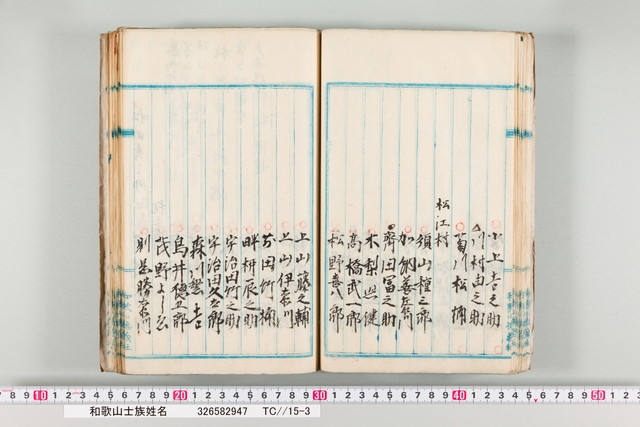 上吉之助
川村由之助
菊川松備
松江村
須山槌三郎
加納善左衛門
木梨熙健
齊田富之助
高橋武一郎
松野喜八郎
上山藤之輔
上山伊右衛門
田竹楠
畔柳辰之助
宇治田竹之助
宇治田久太郎
森川豊吉
鳥井穂五郎
茂野よしゑ
則岡勝右衛門
7 8 9 10 1 2 3 4 5 6 7 8 9 20 1 2 3 4 5 6 7 8 9 30 1 2 3 4 5 6 7 8 9 40 1 2 3 4 5 6 7 8 9 50 1 2
和歌山士族姓名 326582947 TC//15-3